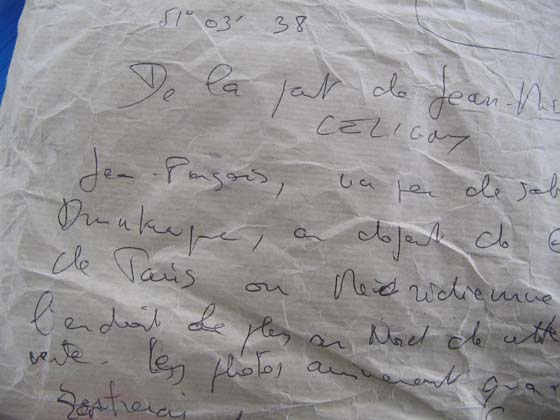 51° 03' 38
De la part de Jean-
CELIGNY
Jean-François, un peu de sab
Dunkerque, au départ de
de Paris ou Méridienne
l'endroit de plus au Nord de cette
verte. Les photos arriveront